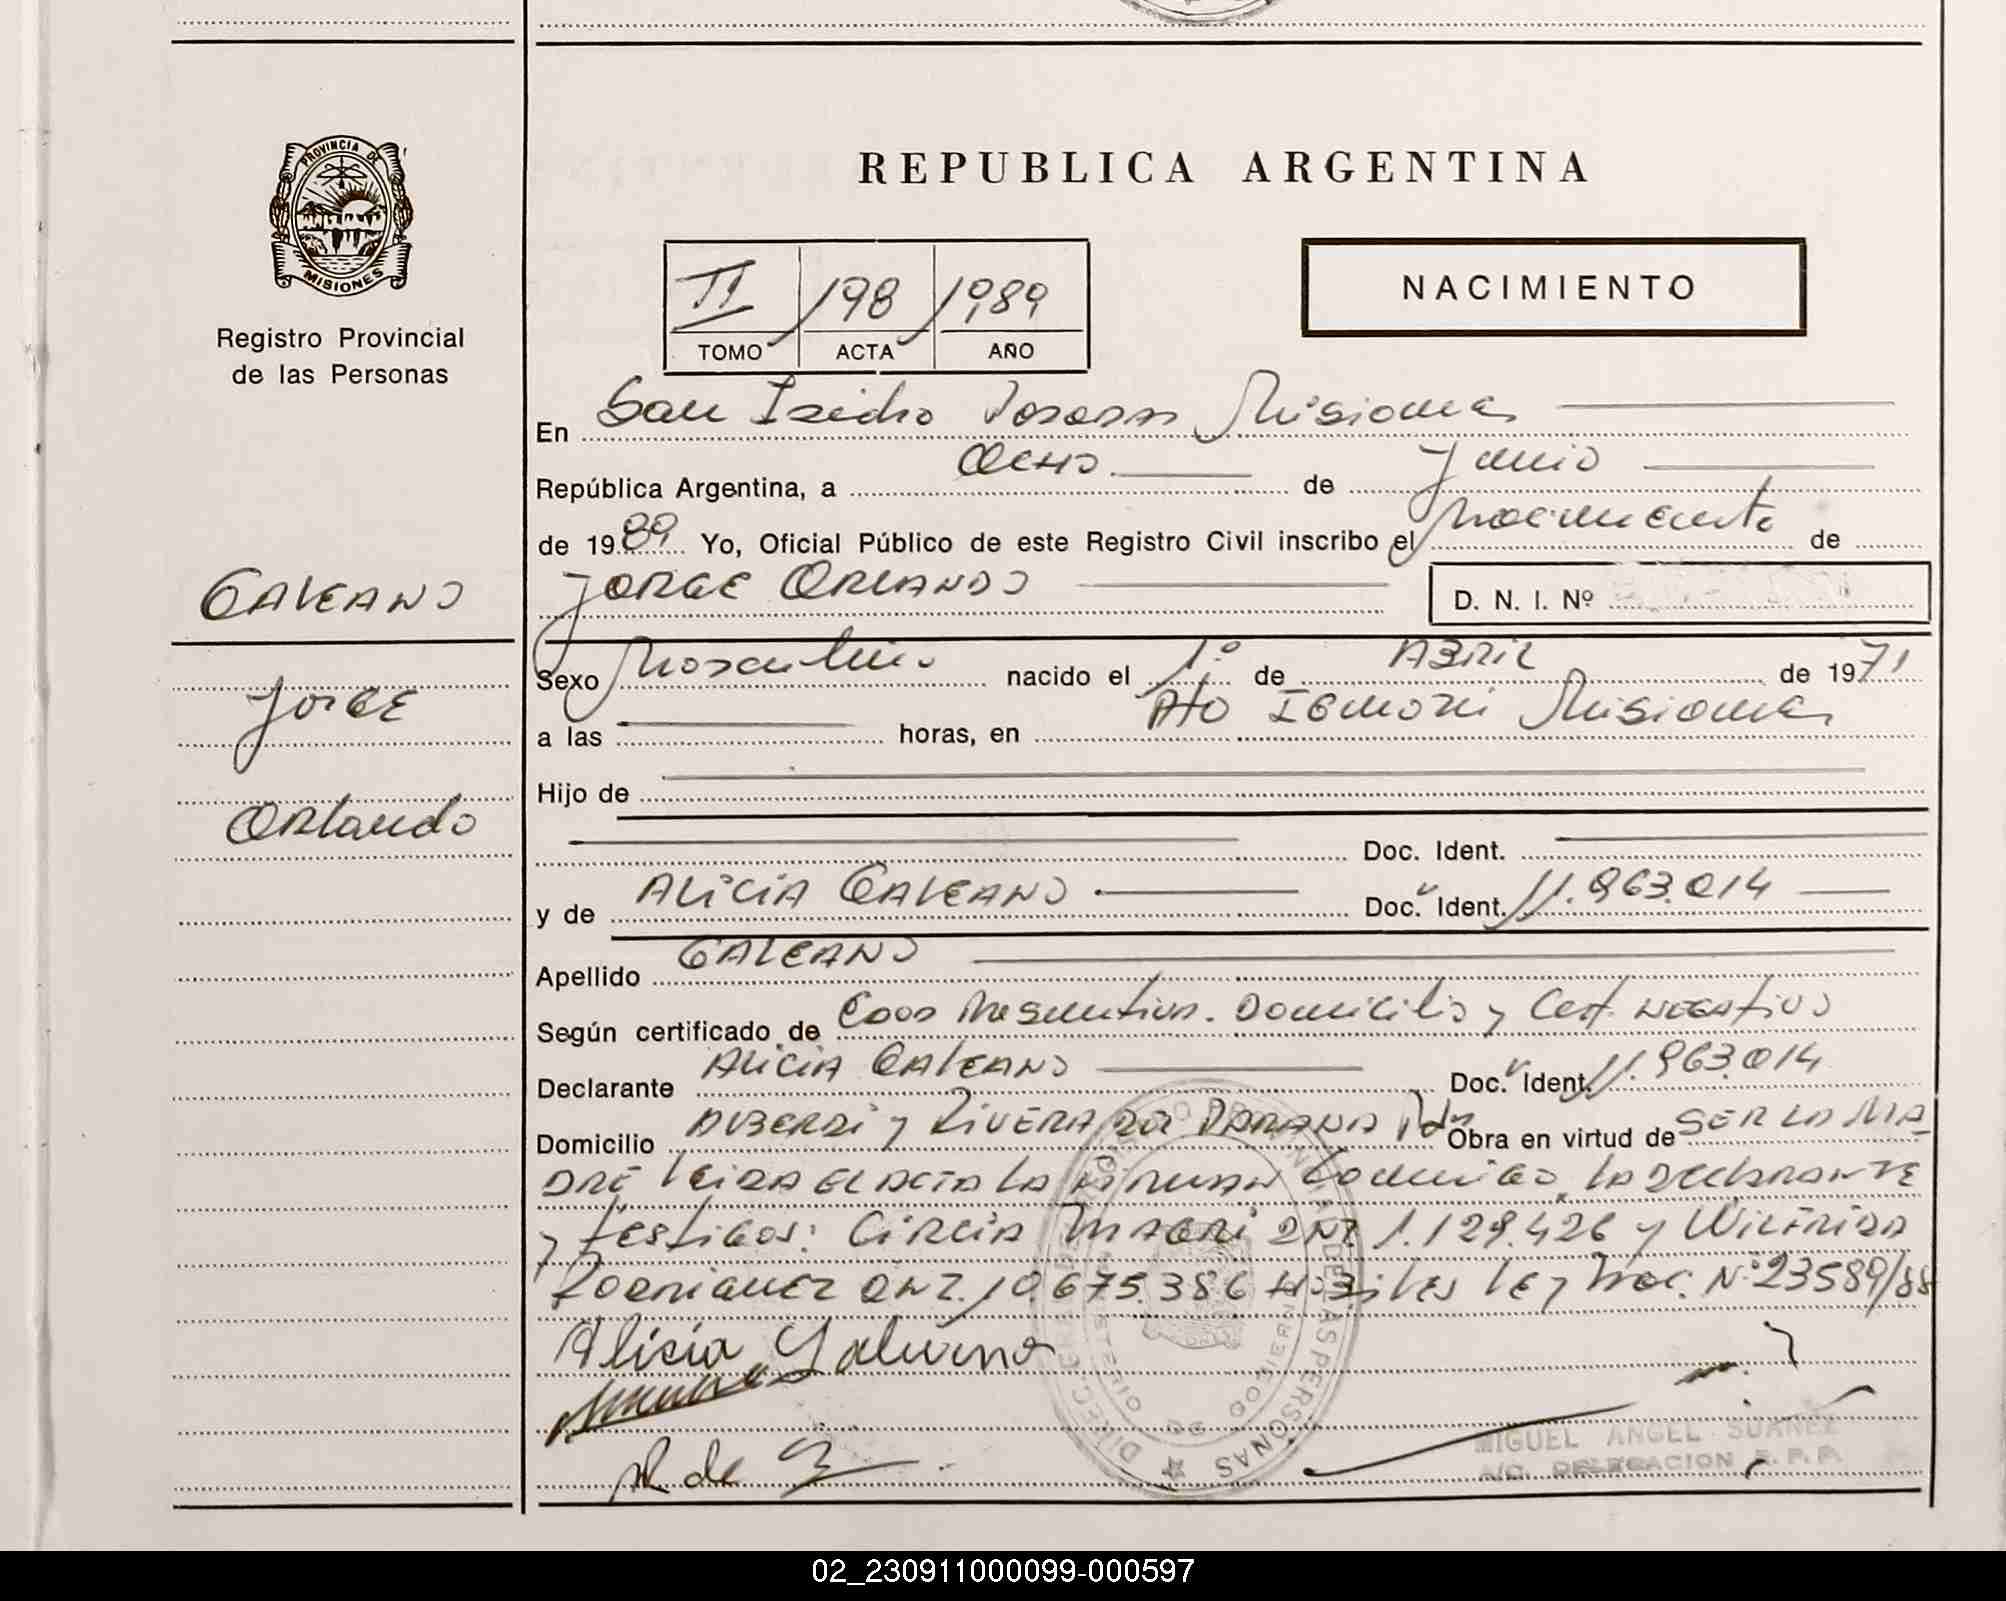 PROVINCIA DE
MISIONES
Registro Provincial
de las Personas
GALEANO
Jorge
Orlando
REPUBLICA ARGENTINA
II 198 1989
TOMO ACTA AÑO
NACIMIENTO
En San Isidro Posadas Misiones
República Argentina, a Ocho de Junio
de 1989 Yo, Oficial Público de este Registro Civil inscribo el Nacimiento de
JORGE ORLANDO
D. N. I. Nº
Sexo Masculino nacido el 1º de ABRIL de 1971
a las horas, en Pto Iguazú Misiones
Hijo de
Doc. Ident.
y de ALICIA GALEANO Doc. Ident. 11.963.014
Apellido GALEANO
Según certificado de Domicilio y Cert. negativo
Declarante ALICIA GALEANO Doc. Ident. 11.963.014
Domicilio ALBERDI y RIVERA DEL PARANA Pdas Obra en virtud de SER LA MA
DRE Leida el acta la firman conmigo, la declarante
y testigos: MAGRI DNI. 1.129.426 y WILFRIDA
Rodriguez DNI. 10.675.386 Hábiles Ley Nac. Nº 23589/88
Alicia Galeano
MIGUEL ANGEL SUAREZ
A/C. DELEGACION R. P. P.
02_230911000099-000597